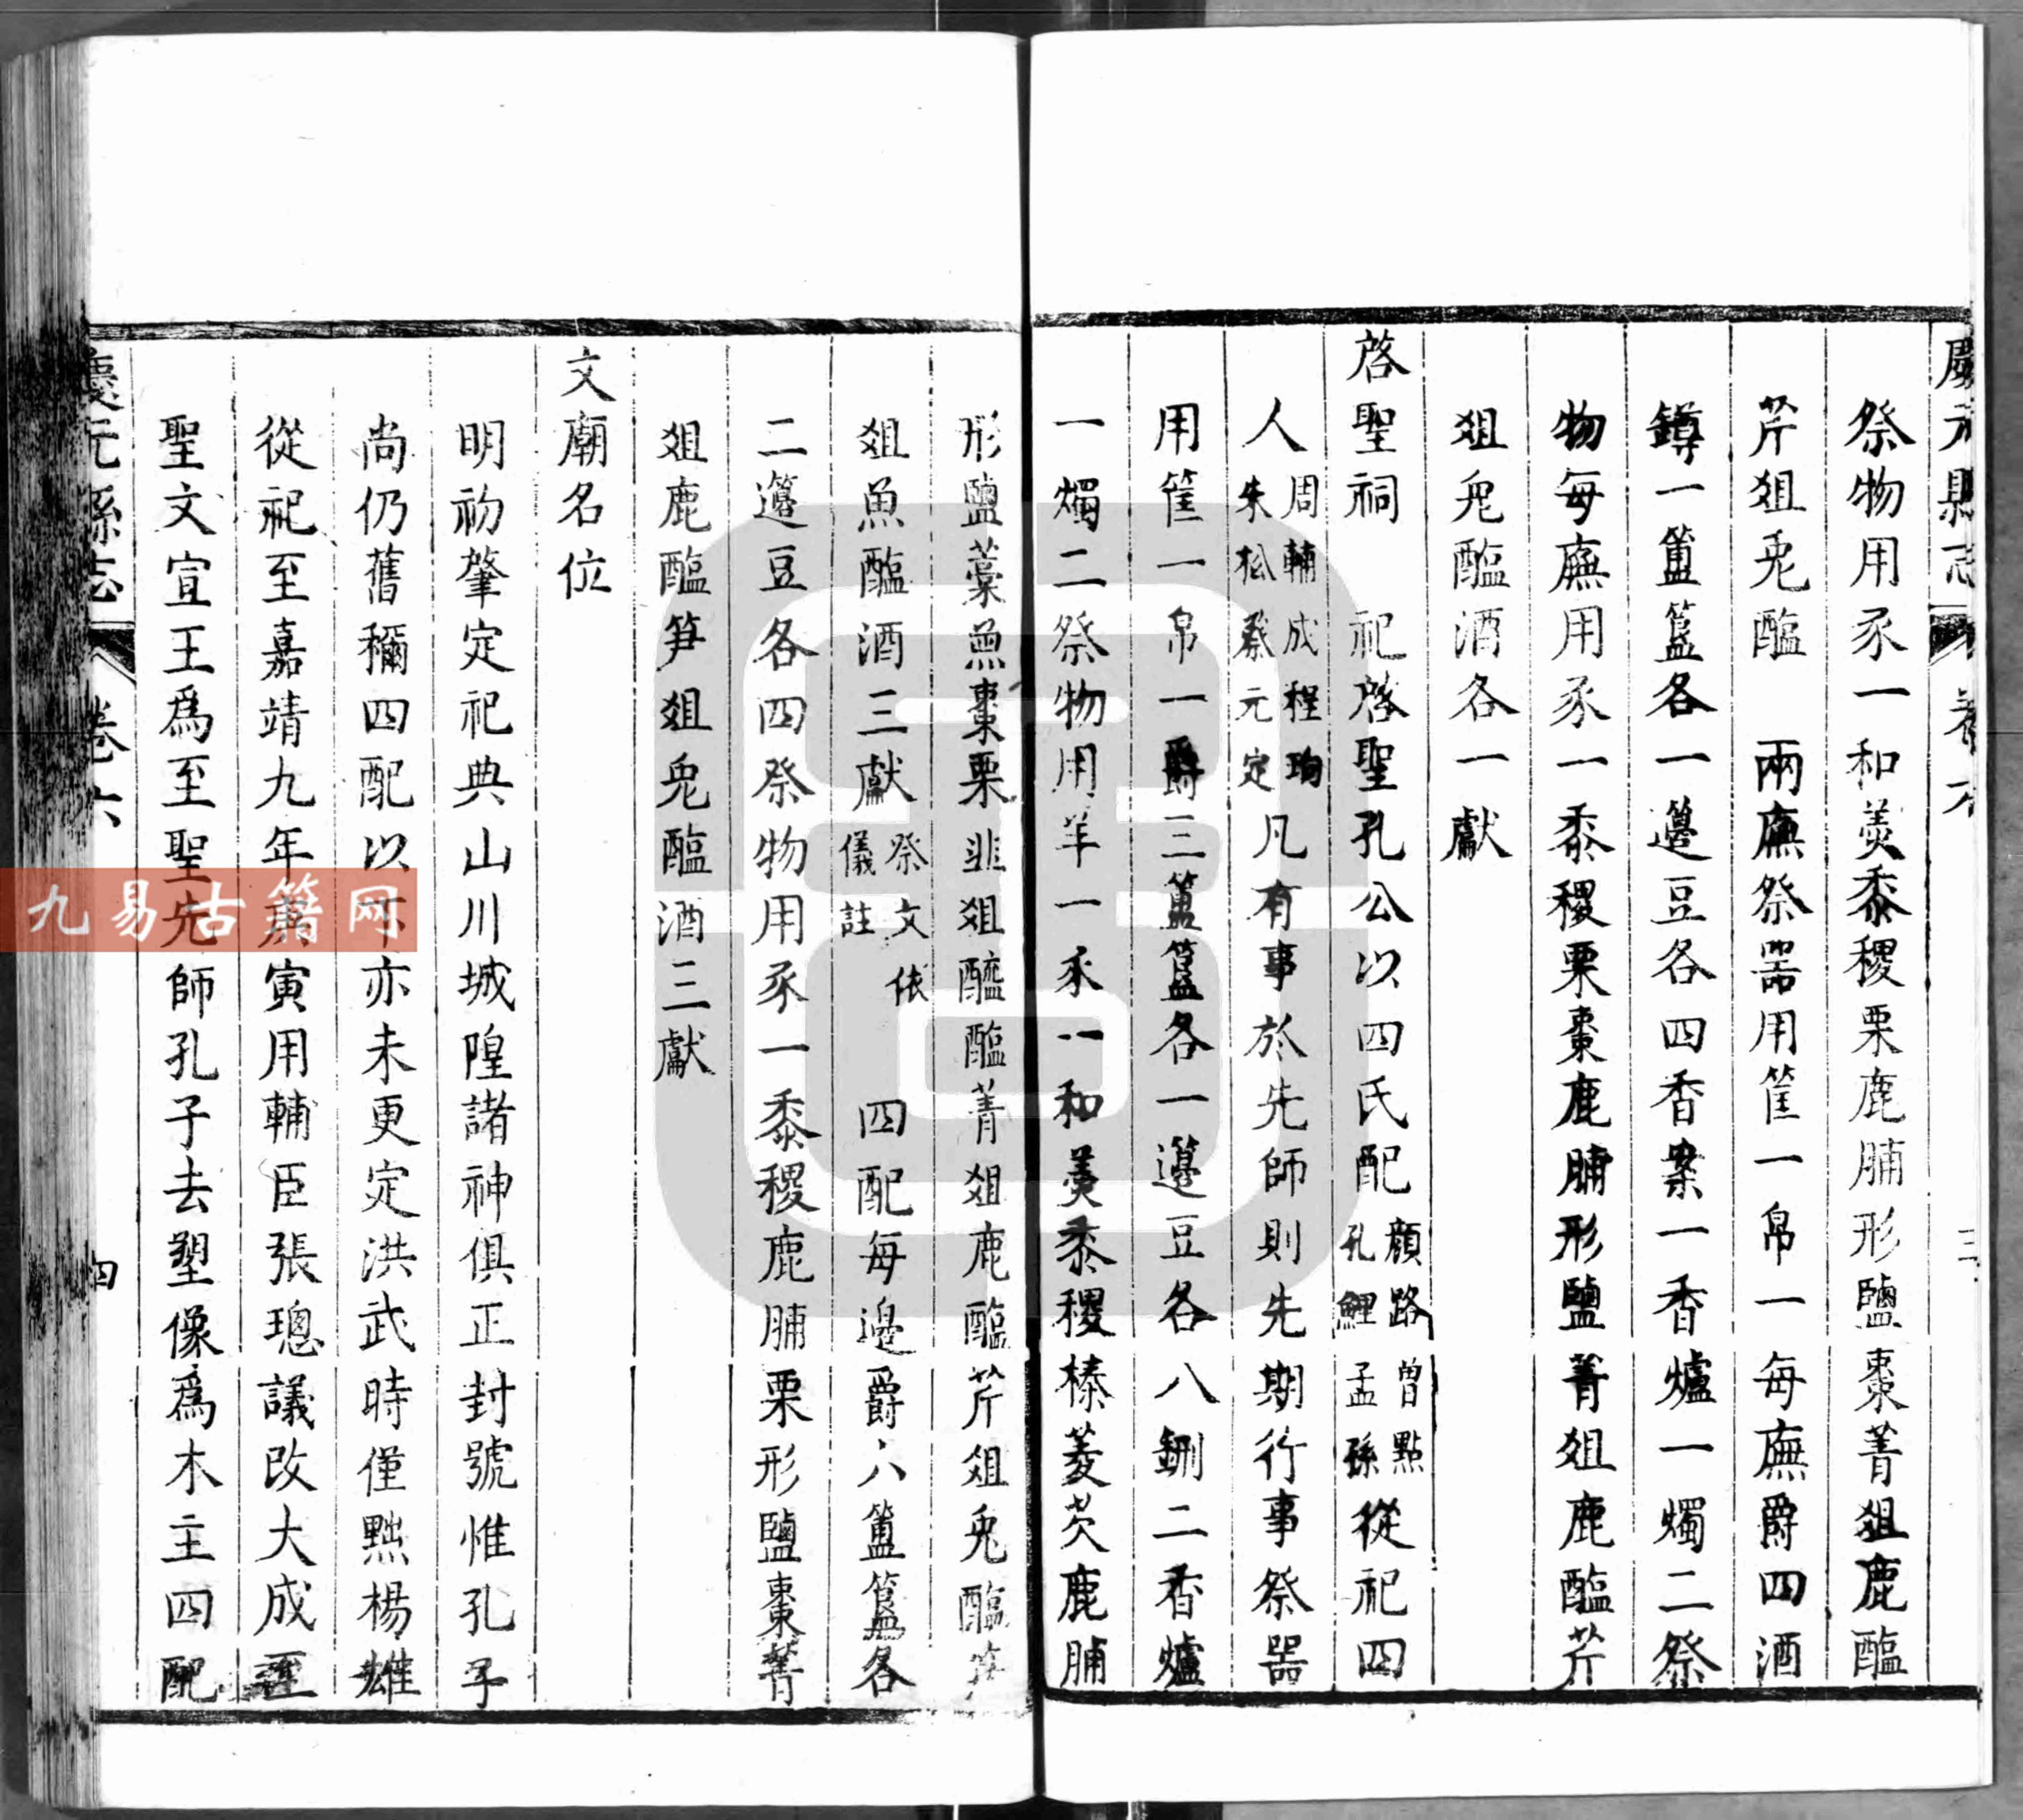 慶元縣志 卷六 三
祭物用豕一和羹黍稷栗鹿脯形鹽棗菁俎鹿醢
芹俎兎醢 兩廡祭器用筐一帛一每廡爵四酒
鐏一簠簋各一籩豆各四香案一香爐一燭二祭
物每廡用豕一黍稷栗棗鹿脯形鹽菁俎鹿醢芹
俎兎醢酒各一獻
啓聖祠 祀啓聖孔公以四氏配顔路孔鯉曾點孟孫從祀四
人周輔成程珦朱松蔡元定凡有事於先師則先期行事祭器
用筐一帛一爵三簠簋各一籩豆各八鉶二香爐
一燭二祭物用羊一豕一和羹黍稷榛菱芡鹿脯
形鹽藁魚棗栗韭俎醯醢菁俎鹿醢芹俎兎醢笋
俎魚醢酒三獻祭文依儀註 四配每邉爵六簠簋各
二籩豆各四祭物用豕一黍稷鹿脯栗形鹽棗菁
俎鹿醢笋俎兎醢酒三獻
文廟名位
明初肇定祀典山川城隍諸神俱正封號惟孔子
尚仍舊稱四配以下亦未更定洪武時僅黜楊雄
從祀至嘉靖九年庚寅用輔臣張璁議改大成至
聖文宣王爲至聖先師孔子去塑像爲木主四配
慶元縣志 卷六 四
九易古籍网